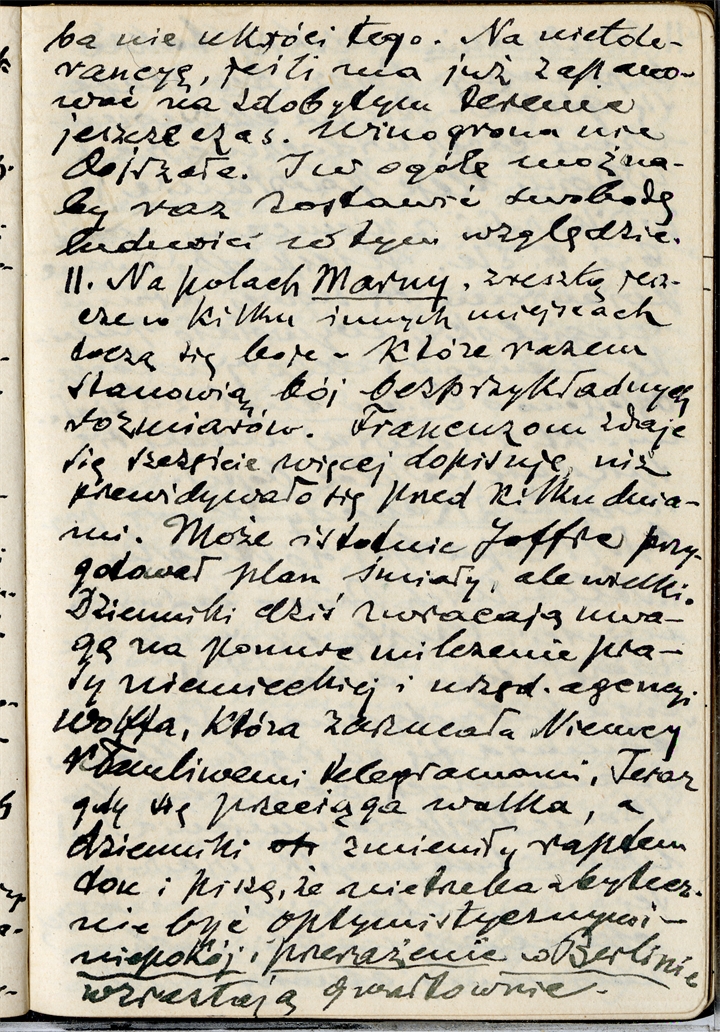 ba nie ukróci tego. Na nietole-
rancyą, jeśli ma już zapano-
wać na zdobytym terenie
jeszcze czas. Winogrona nie
dojrzałe. I w ogóle można-
by raz zostawić swobodę
ludności w tym względzie.
11. Na polach Marny, zresztą jesz-
cze w kilku innych miejscach
toczą się boje - które razem
stanowią bój bezprzykładnych
rozmiarów. Francuzom zdaje
się szczęście więcej dopisuje, niż
przewidywało się przed kilku dnia-
mi. Może istotnie Joffre przy-
gotował plan śmiały, ale wielki.
Dzienniki dziś zwracają uwa-
gę na ponure milczenie pra-
sy niemieckiej i urzęd. agencyi
Wolffa, która zarzucała Niemcy
kłamliwemi telegramami. Teraz
gdy się przeciąga walka, a
dzienniki zmieniły raptem
ton i piszą, że nie trzeba zbytecz-
nie być optymistycznymi -
niepokój i przerażenie w Berlinie
wzrastają gwałtownie. -